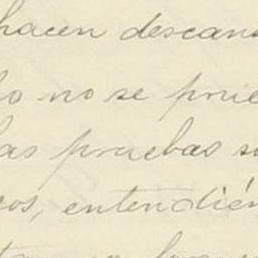 hacen descans
o no se prue
as pruebas s
os, entendién